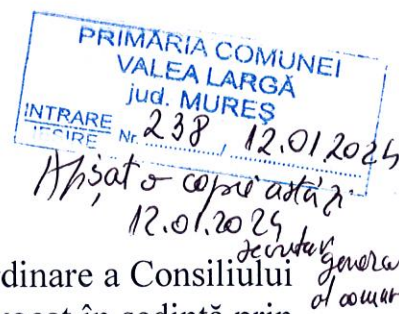 PRIMĂRIA COMUNEI
VALEA LARGĂ
jud. MUREȘ
INTRARE
IEȘIRE Nr. 238 / 12.01.2024
Afișat o copie astăzi
12.01.2024
secretar
general
al comunei
dinare a Consiliului